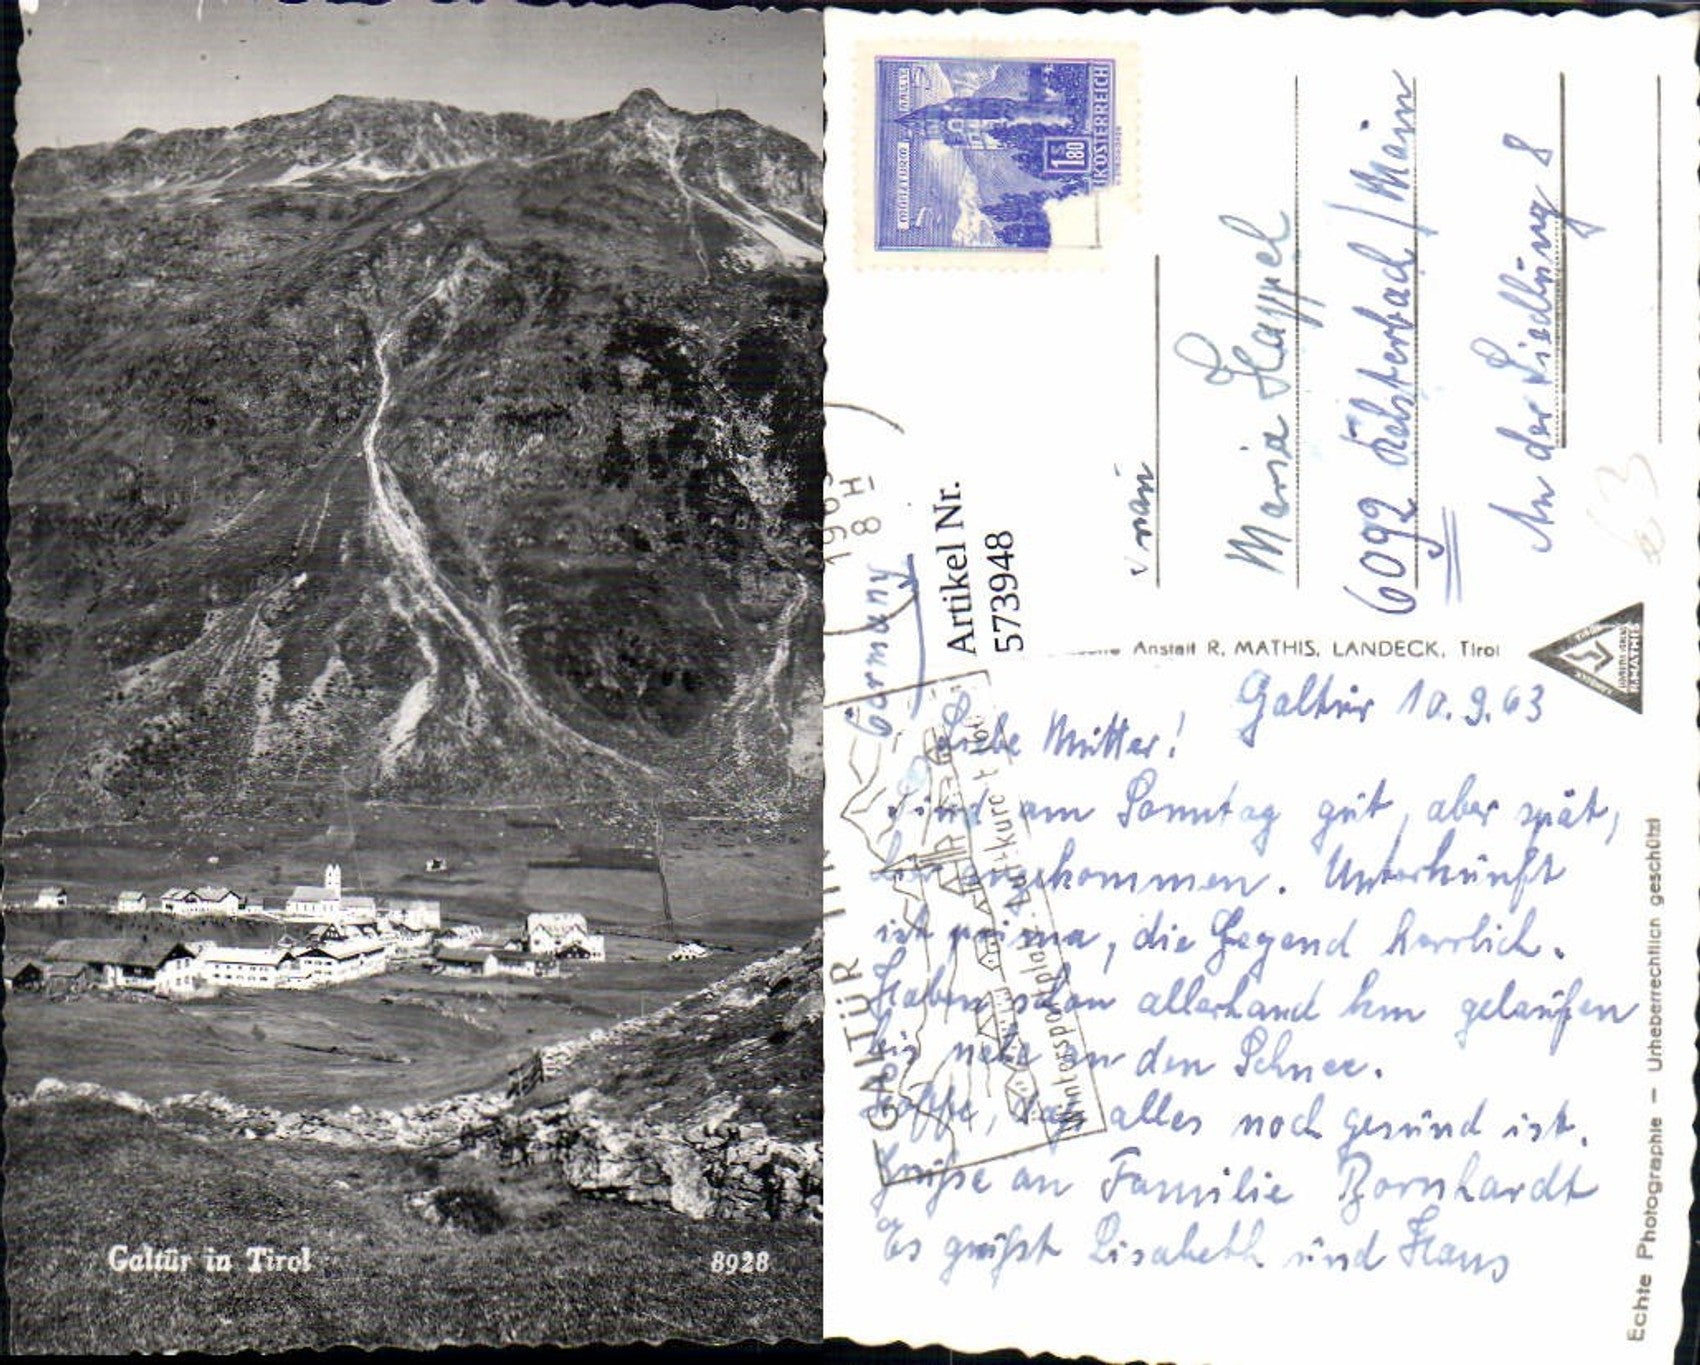 Galtür in Tirol
8928
REPUBLIK ÖSTERREICH
S 1.80
1963
8 H
Germany
Artikel Nr.
573948
Maria Happel
6092 Kelsterbach / Main
An der Siedlung 8
Anstalt R. MATHIS, LANDECK, Tirol
R.MATHIS
GALTÜR
Wintersportplatz
Luftkurort
Galtür 10.9.63
Liebe Mutter!
Sind am Sonntag gut, aber spät,
hier angekommen. Unterkunft
ist prima, die Gegend herrlich.
Haben schon allerhand km gelaufen
bis nahe an den Schnee.
Hoffe, daß alles noch gesund ist.
Grüße an Familie Bornhardt
Es grüßt Lisabeth und Hans
Echte Photographie – Urheberrechtlich geschützt